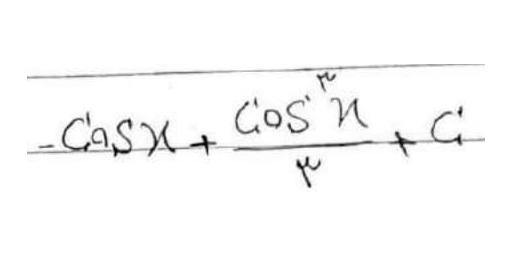 -Cosx + Cos^۳ x / ۳ + C